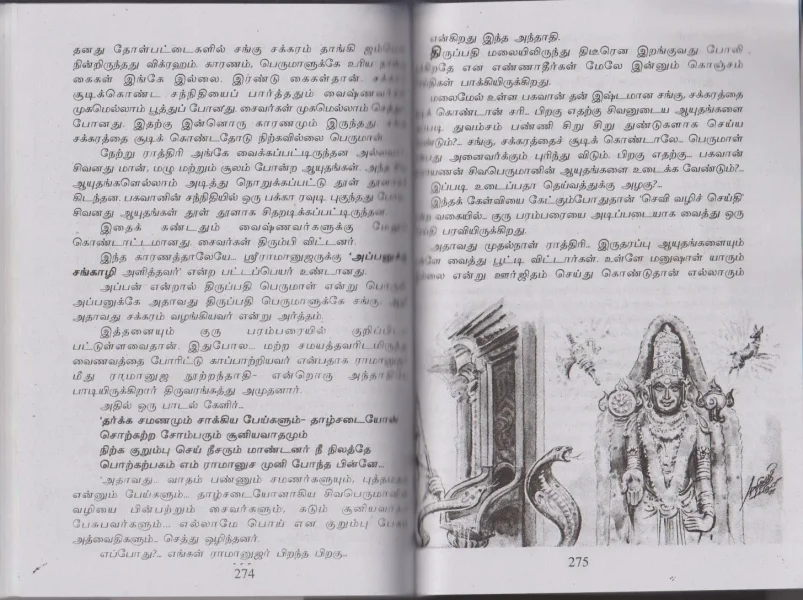 தனது தோள்பட்டைகளில் சங்கு சக்கரம் தாங்கி
நின்றிருந்தது விக்ரஹம். காரணம், பெருமாளுக்கே உரிய
கைகள் இங்கே இல்லை. இரண்டு கைகள்தான்.
சூடிக்கொண்ட சந்நிதியைப் பார்த்ததும்
முகமெல்லாம் பூத்துப் போனது. சைவர்கள் முகமெல்லாம்
போனது. இதற்கு இன்னொரு காரணமும் இருந்தது.
சக்கரத்தை சூடிக் கொண்டதோடு நிற்கவில்லை பெருமாள்.
நேற்று ராத்திரி அங்கே வைக்கப்பட்டிருந்தன
சிவனது மான், மழு மற்றும் சூலம் போன்ற ஆயுதங்கள்.
ஆயுதங்களெல்லாம் அடித்து நொறுக்கப்பட்டு தூள்
கிடந்தன. பகவானின் சந்நிதியில் ஒரு பக்கா ரவுடி புகுந்தது
சிவனது ஆயுதங்கள் தூள் தூளாக சிதறடிக்கப்பட்டிருந்தன.
இதைக் கண்டதும் வைஷ்ணவர்களுக்கு
கொண்டாட்டமானது. சைவர்கள் திரும்பி விட்டனர்.
இந்த காரணத்தாலேயே.. ஸ்ரீராமானுஜருக்கு 'அப்பனுக்கு
சங்காழி அளித்தவர்' என்ற பட்டப்பெயர் உண்டானது.
அப்பன் என்றால் திருப்பதி பெருமாள் என்று
அப்பனுக்கே அதாவது திருப்பதி பெருமாளுக்கே சங்கு,
அதாவது சக்கரம் வழங்கியவர் என்று அர்த்தம்.
இத்தனையும் குரு பரம்பரையில்
பட்டுள்ளவைதான். இதுபோல... மற்ற
வைணவத்தை போரிட்டு காப்பாற்றியவர் என்பதாக
மீது ராமானுஜ நூற்றந்தாதி- என்றொரு
பாடியிருக்கிறார் திருவரங்கத்து அமுதனார்.
அதில் ஒரு பாடல் கேளிர்..
'தர்க்க சமணமும் சாக்கிய பேய்களும்- தாழ்சடையோன்
சொற்கற்ற சோம்பரும் சூனியவாதமும்
நிற்க குறும்பு செய் நீசரும் மாண்டனர் நீ நிலத்தே
பொற்கற்பகம் எம் ராமானுச முனி போந்த பின்னே...
'அதாவது.. வாதம் பண்ணும் சமணர்களும்,
என்னும் பேய்களும்... தாழ்சடையோனாகிய
வழியை பின்பற்றும் சைவர்களும், கடும்
பேசுபவர்களும்... எல்லாமே பொய் என குறும்பு
அத்வைதிகளும்.. செத்து ஒழிந்தனர்.
எப்போது?.. எங்கள் ராமானுஜர் பிறந்த பிறகு..
274
என்கிறது இந்த அந்தாதி.
திருப்பதி மலையிலிருந்து திடீரென இறங்குவது போல
என எண்ணாதீர்கள் மேலே இன்னும் கொஞ்சம்
பாக்கியிருக்கிறது.
மலைமேல் உள்ள பகவான் தன் இஷ்டமான சங்கு, சக்கரத்தை
கொண்டான் சரி.. பிறகு எதற்கு சிவனுடைய ஆயுதங்களை
துவம்சம் பண்ணி சிறு சிறு துண்டுகளாக செய்ய
சங்கு, சக்கரத்தைச் சூடிக் கொண்டாலே.. பெருமாள்
அனைவர்க்கும் புரிந்து விடும். பிறகு எதற்கு... பகவான்
சிவபெருமானின் ஆயுதங்களை உடைக்க வேண்டும்?..
இப்படி உடைப்பதா தெய்வத்துக்கு அழகு?..
இந்தக் கேள்வியை கேட்கும்போதுதான் 'செவி வழிச் செய்தி'
வகையில்.. குரு பரம்பரையை அடிப்படையாக வைத்து ஒரு
பரவியிருக்கிறது.
அதாவது முதல்நாள் ராத்திரி.. இருதரப்பு ஆயுதங்களையும்
வைத்து பூட்டி விட்டார்கள். உள்ளே மனுஷாள் யாரும்
என்று ஊர்ஜிதம் செய்து கொண்டுதான் எல்லாரும்
275